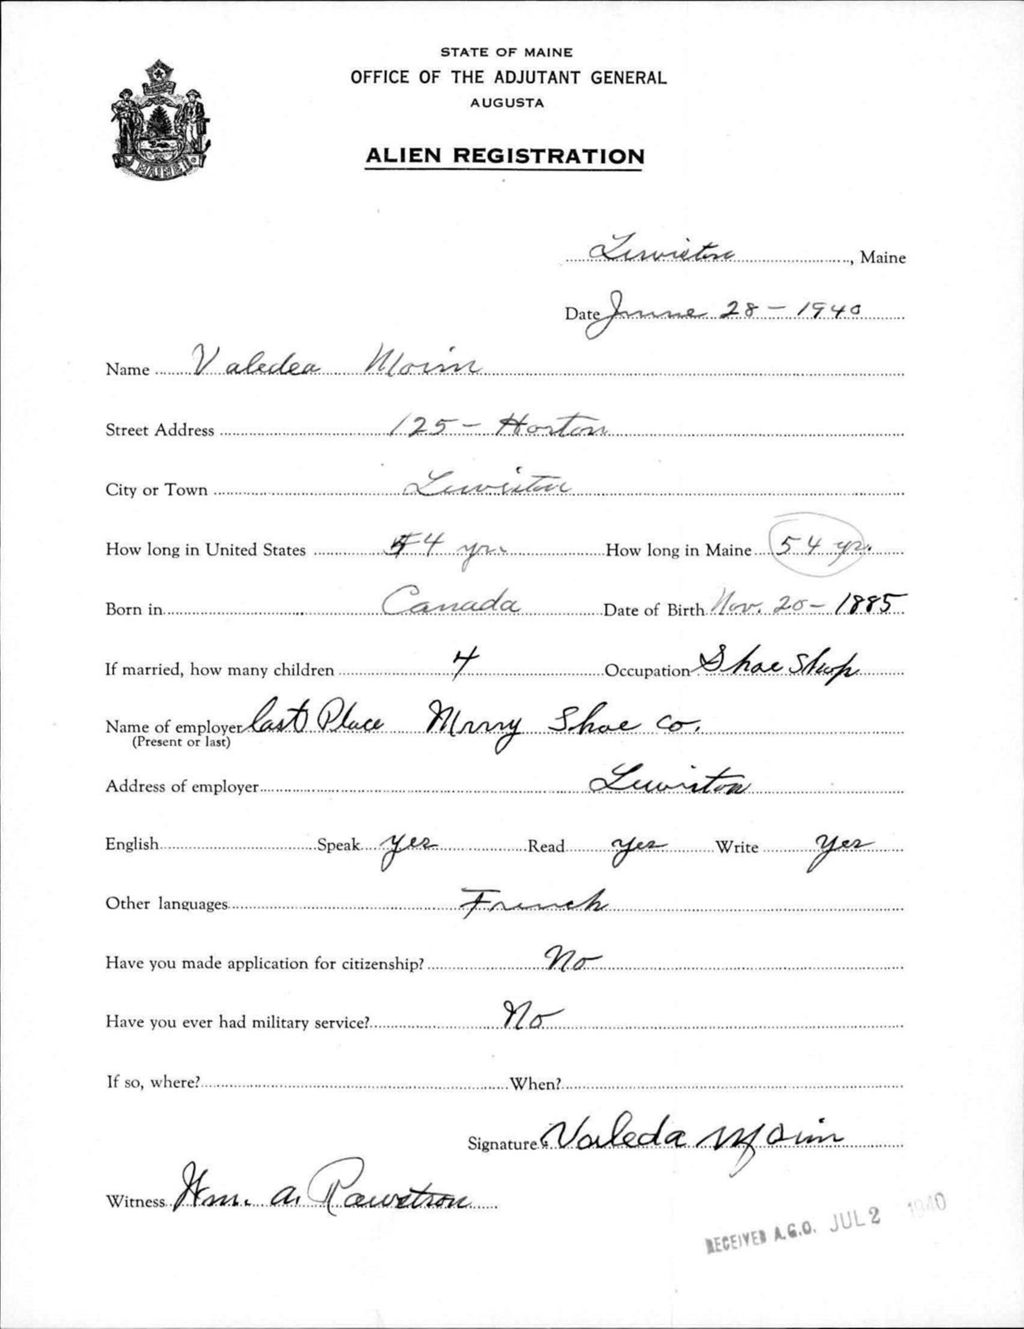 STATE OF MAINE
OFFICE OF THE ADJUTANT GENERAL
AUGUSTA
MAINE
ALIEN REGISTRATION
Lewiston, Maine
Date June 28 - 1940
Name Valedea Morin
Street Address 125 - Horton
City or Town Lewiston
How long in United States 54 yr. How long in Maine 54 yr.
Born in Canada Date of Birth Nov. 20 - 1885
If married, how many children 4 Occupation Shoe Shop
Name of employer last Place Shoe Co.
(Present or last)
Address of employer Lewiston
English Speak Yes Read Yes Write Yes
Other languages French
Have you made application for citizenship? No
Have you ever had military service? No
If so, where? When?
Signature Valeda Morin
Witness Wm. A. Rawstron
RECEIVED A.G.O. JUL 2 1940